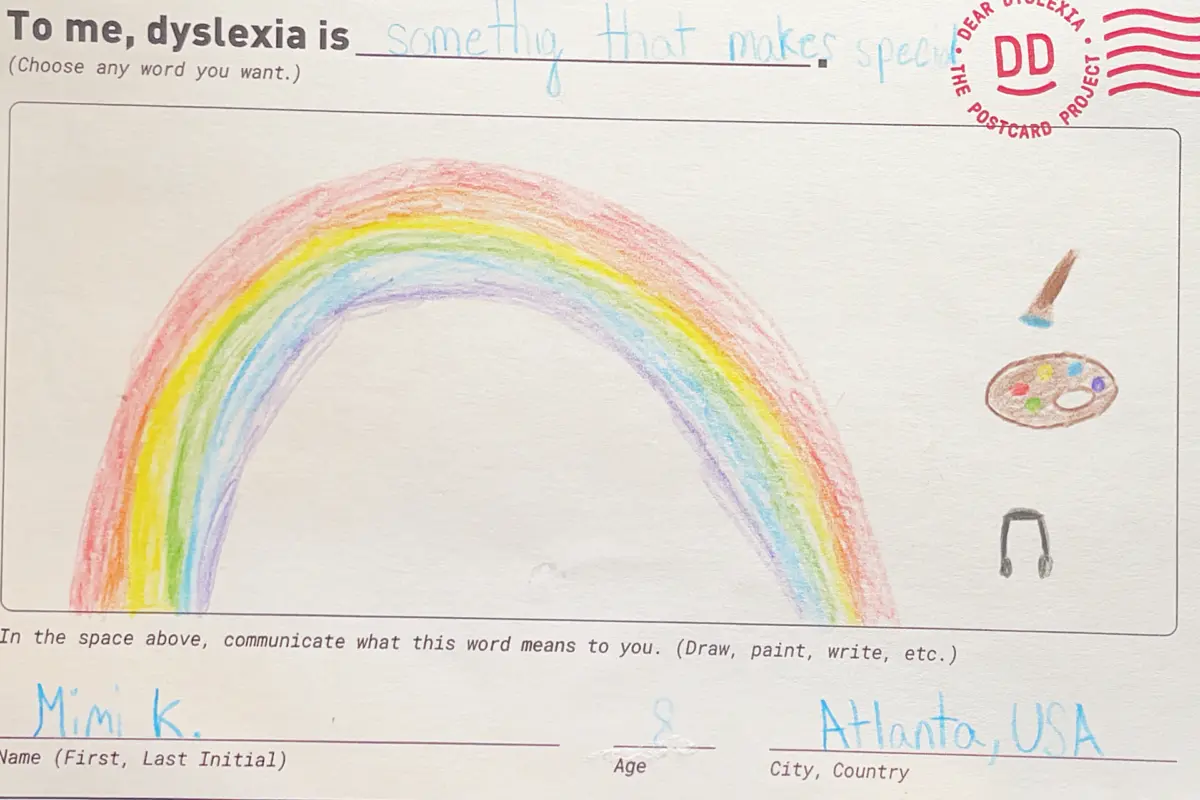 To me, dyslexia is somethig that makes special.
(Choose any word you want.)
DEAR DYSLEXIA • THE POSTCARD PROJECT •
DD
In the space above, communicate what this word means to you. (Draw, paint, write, etc.)
Mimi K. 8 Atlanta, USA
Name (First, Last Initial) Age City, Country